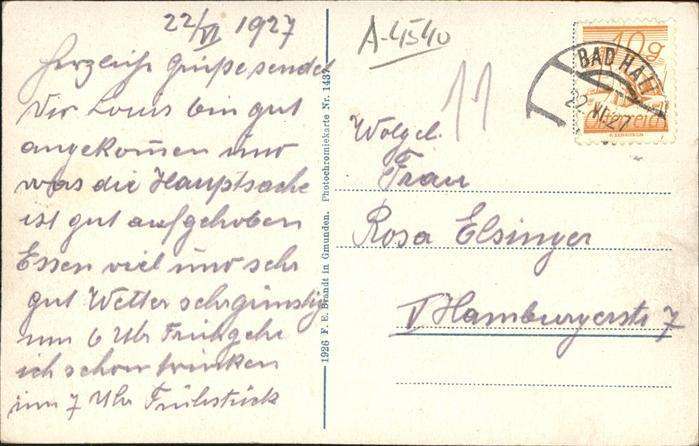 22/VI 1927
Herzliche Grüße sendet
Dir Louis bin gut
angekom̅en und
was die Hauptsache
ist gut aufgehoben
Essen viel und sehr
gut Wetter sehr günstig
um 6 Uhr Früh gehe
ich schon trinken
um 7 Uhr Frühstück
1926 F. E. Brandt in Gmunden. Photochromiekarte Nr. 1437
A-4540
11
10g
BAD HALL
22.VI.27
Wolgeb.
Frau
Rosa Elsinger
V Hamburgerstr 7